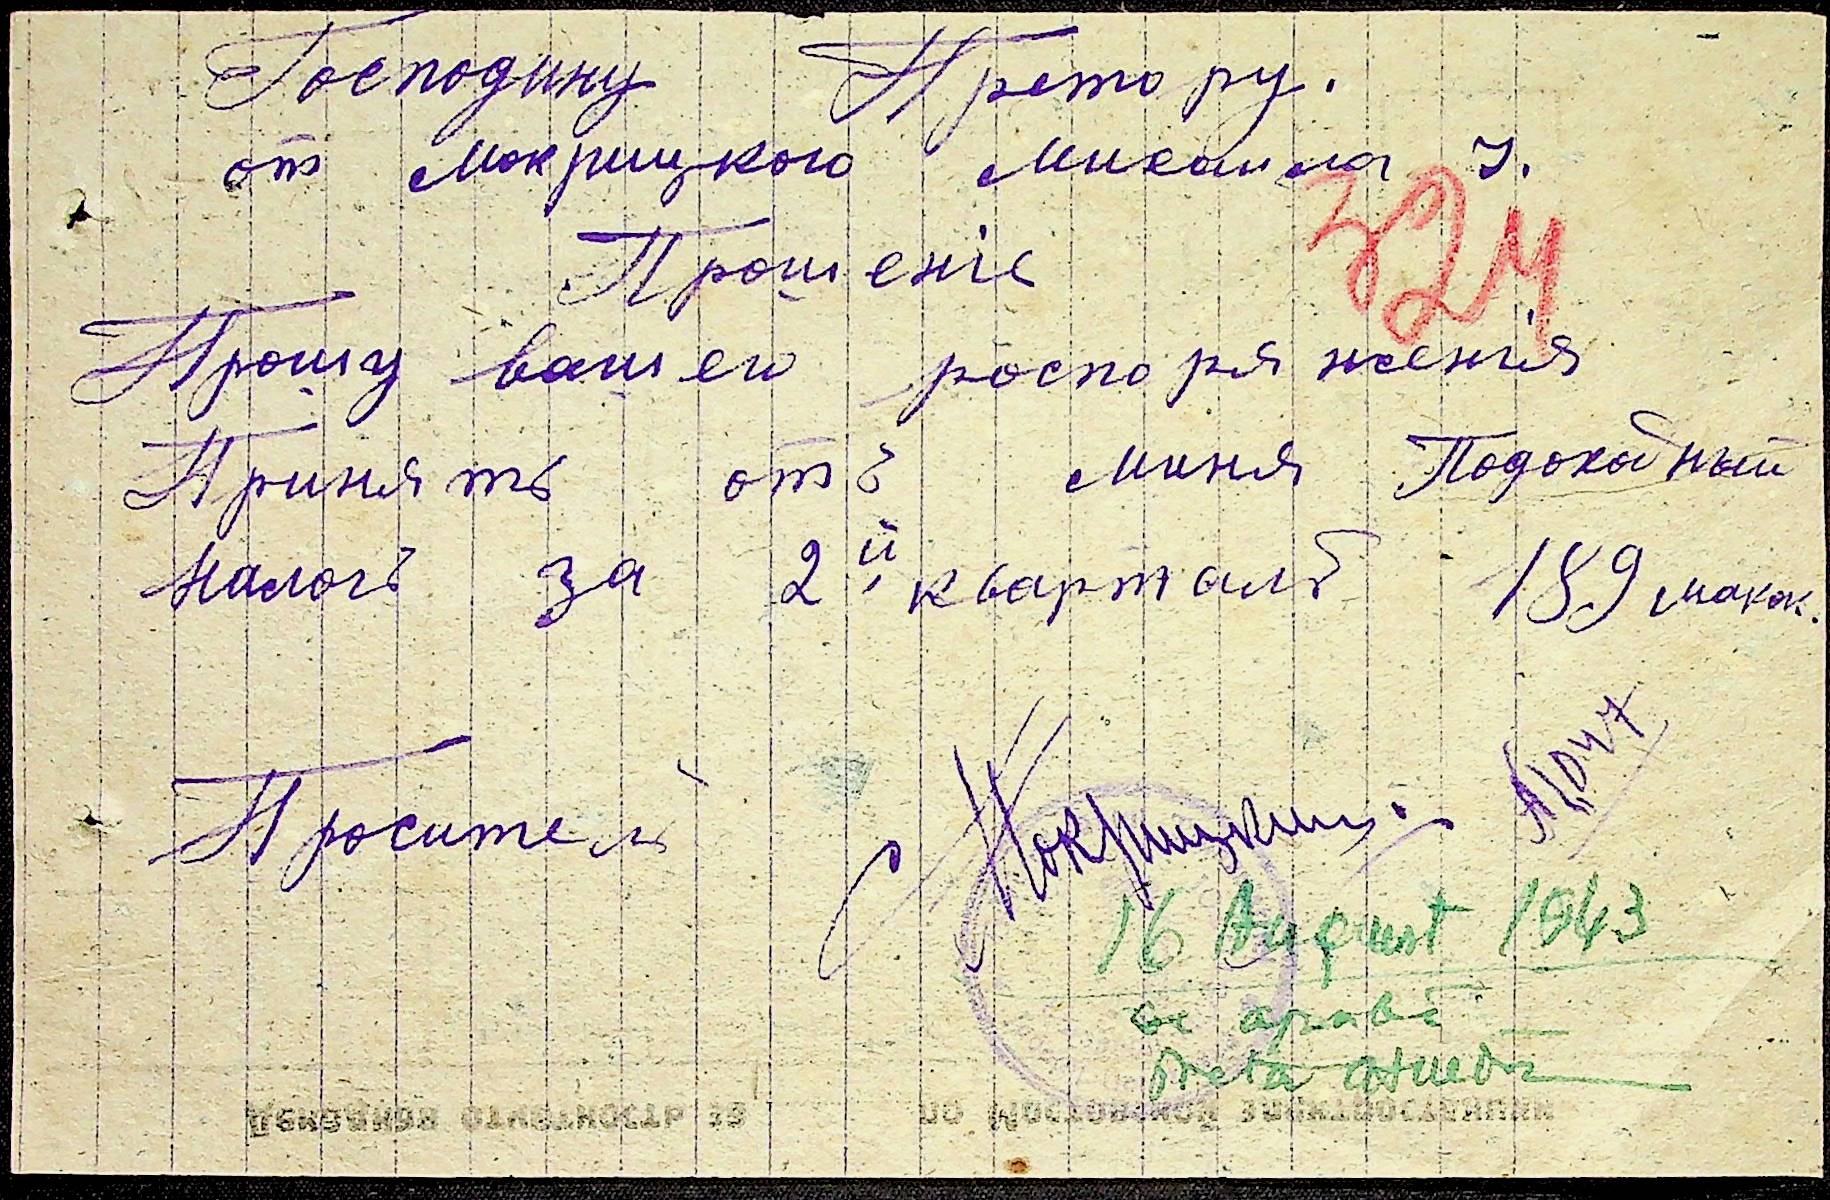 Господину Претору.
от Мокрицкого Михаила У.
Прошеніе
324
Прошу вашего роспоряженія
Принять отъ миня Подоходный
налогъ за 2й кварталъ 189 марок.
Проситель Мокрицкий
16 August 1943
se aprobă